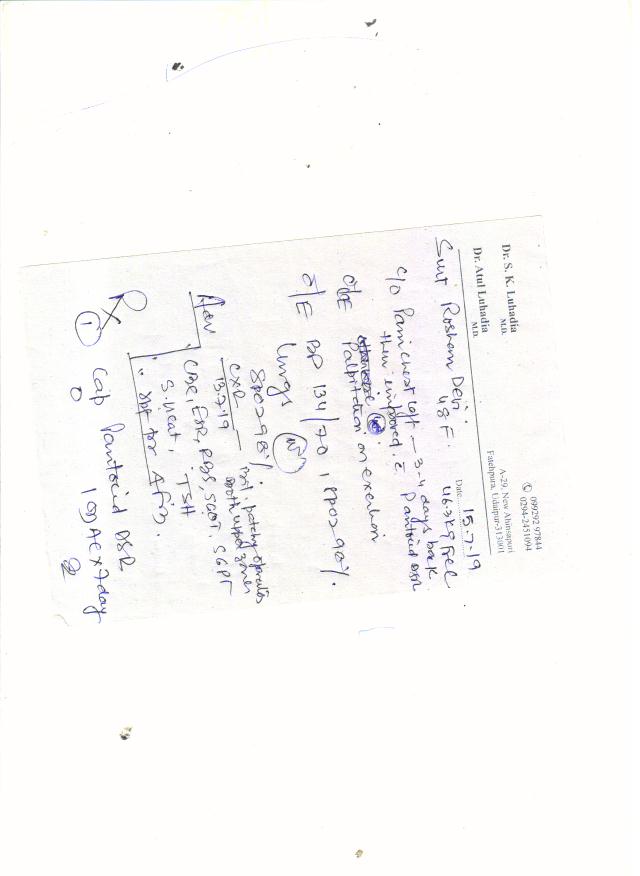 Dr. S. K. Luhadia
M.D.
Dr. Atul Luhadia
M.D.
✆ 099292 97844
0294-2451094
A-29, New Ahinsapuri
Fatehpura, Udaipur-313001
Date 15.7.19
Smt Roshan Devi
48 F. 46.3 kg
c/o Pain chest left - 3-4 days back
then improved c̄ Pantocid DSR
Palpitation on exertion
o/E BP 134/70
Lungs (N)
SPO2 98%
CXR
13.7.19
patchy opacities
both upper zones
Adv
CBC, ESR, RBS, SGOT, SGPT
S. Creat, TSH
Spt for AFB
Rx
① Cap Pantocid DSR
1 OD AC x 7 day